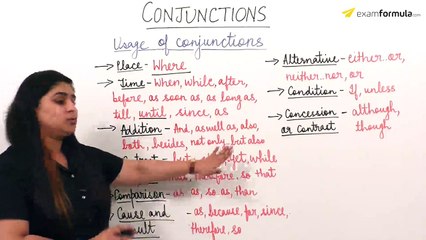 CONJUNCTIONS
examformula.com
Usage of conjunctions
Place - Where
Time - When, while, after,
before, as soon as, as long as,
till, until, since, as
Addition - And, as well as, also,
both, besides, not only, but also
but, yet, while
therefore, so that
Comparison - as as, so as, than
Cause and - as, because, for, since,
therefore, so
Alternative - either..or,
neither..nor, or
Condition - If, unless
Concession - although,
or Contrast though